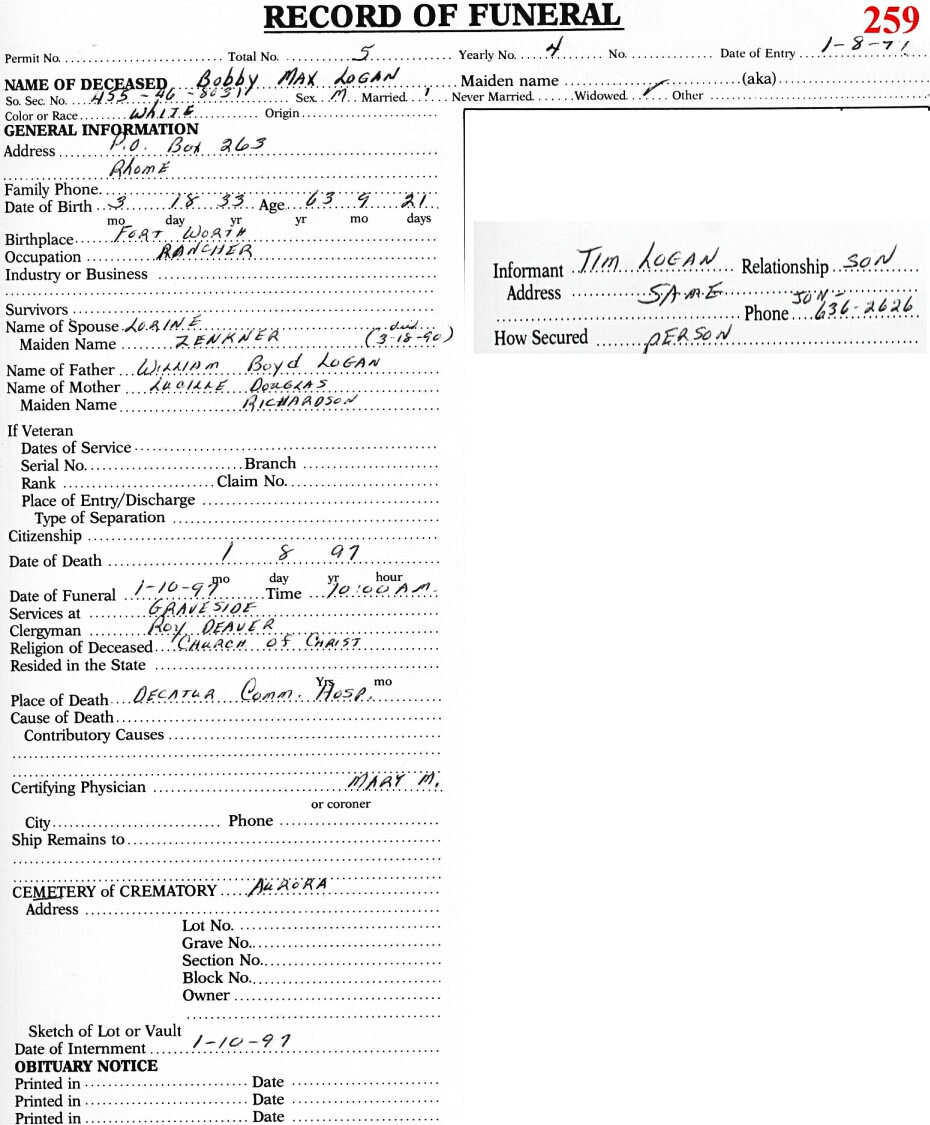 RECORD OF FUNERAL
259
Permit No. Total No. 5 Yearly No. 4 No. Date of Entry 1-8-97
NAME OF DECEASED Bobby MAX LOGAN Maiden name (aka)
So. Sec. No. 455-46-8631 Sex M Married Never Married Widowed ✓ Other
Color or Race WHITE Origin
GENERAL INFORMATION
Address P.O. Box 263
RhomE
Family Phone
Date of Birth 3 18 33 Age 63 9 21
mo day yr yr mo days
Birthplace FORT WORTH
Occupation RANCHER
Industry or Business
Survivors
Name of Spouse LORINE
Maiden Name ZENKNER (died 3-18-90)
Name of Father WILLIAM Boyd LOGAN
Name of Mother LUCILLE DOUGLAS
Maiden Name RICHARDSON
If Veteran
Dates of Service
Serial No. Branch
Rank Claim No.
Place of Entry/Discharge
Type of Separation
Citizenship
Date of Death 1 8 97
mo day yr hour
Date of Funeral 1-10-97 Time 10:00 A.M.
Services at GRAVESIDE
Clergyman Roy DEAVER
Religion of Deceased CHURCH OF CHRIST
Resided in the State
Yrs mo
Place of Death DECATUR Comm. HOSP.
Cause of Death
Contributory Causes
Certifying Physician MARY M.
or coroner
City Phone
Ship Remains to
CEMETERY of CREMATORY AURORA
Address
Lot No.
Grave No.
Section No.
Block No.
Owner
Sketch of Lot or Vault
Date of Internment 1-10-97
OBITUARY NOTICE
Printed in Date
Printed in Date
Printed in Date
Informant TIM LOGAN Relationship SON
Address SAME
Phone 636-2626
How Secured PERSON